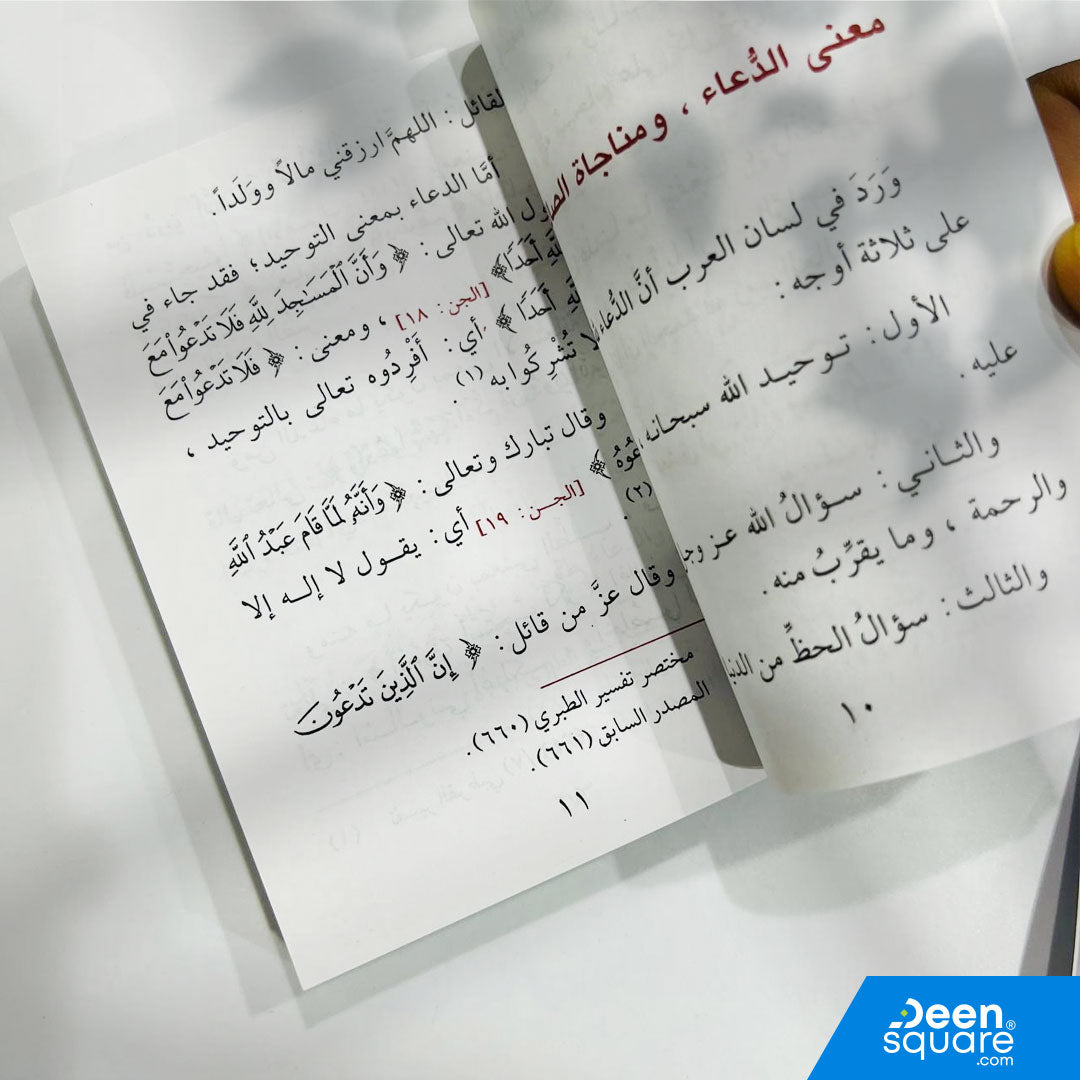 معنى الدُّعاء ، ومناجاة
وَرَدَ في لسان العرب أنَّ الدُّعاء
على ثلاثة أوجه :
الأول : توحيد الله سبحانه
عليه .
والثاني : سؤالُ الله عز وجل
والرحمة ، وما يقرِّبُ منه .
والثالث : سؤالُ الحظِّ من الدنيا
١٠
لقائل : اللهمَّ ارزقني مالاً وولَداً .
أمَّا الدعاء بمعنى التوحيد؛ فقد جاء في
ول الله تعالى : ﴿ وَأَنَّ ٱلْمَسَٰجِدَ لِلَّهِ فَلَا تَدْعُوا۟ مَعَ
للَّهِ أَحَدًا ﴾ [الجن: ١٨] ، ومعنى : ﴿ فَلَا تَدْعُوا۟ مَعَ
للَّهِ أَحَدًا ﴾ أي : أَفْرِدُوه تعالى بالتوحيد ،
لا تُشْرِكُوا به (١) .
وقال تبارك وتعالى : ﴿ وَأَنَّهُۥ لَمَّا قَامَ عَبْدُ ٱللَّهِ
عُوهُ ﴾ [الجن: ١٩] أي : يقول لا إله إلا
(٢) .
وقال عزَّ من قائل : ﴿ إِنَّ ٱلَّذِينَ تَدْعُونَ
مختصر تفسير الطبري (٦٦٠) .
المصدر السابق (٦٦١) .
١١
Deen®
square
.com